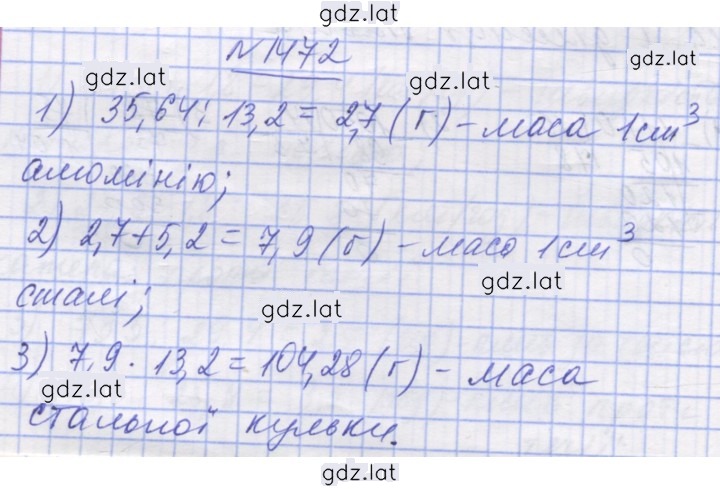 gdz.lat
N 1472
gdz.lat gdz.lat
1) 35,64 : 13,2 = 2,7 (г) - маса 1 cm³
алюмінію;
gdz.lat
2) 2,7 + 5,2 = 7,9 (г) - маса 1 cm³
gdz.lat
сталі;
gdz.lat
3) 7,9 · 13,2 = 104,28 (г) - маса
gdz.lat gdz.lat
стальної кульки.
gdz.lat